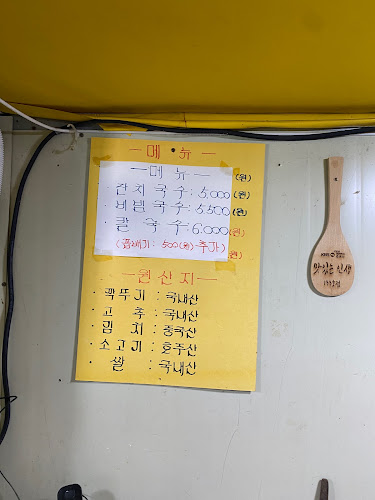 — 메 뉴 —
— 메 뉴 —
(원)
잔치 국 수 : 5.000 (원)
비빔 국 수 : 5.500 (원)
칼 국 수 : 6.000 (원)
(곱빼기 : 500 (원) 추가)
(원)
— 원 산 지 —
· 깍뚜기 : 국내산
· 고 추 : 국내산
· 김 치 : 중국산
· 소고기 : 호주산
· 쌀 : 국내산
맛있는 인생